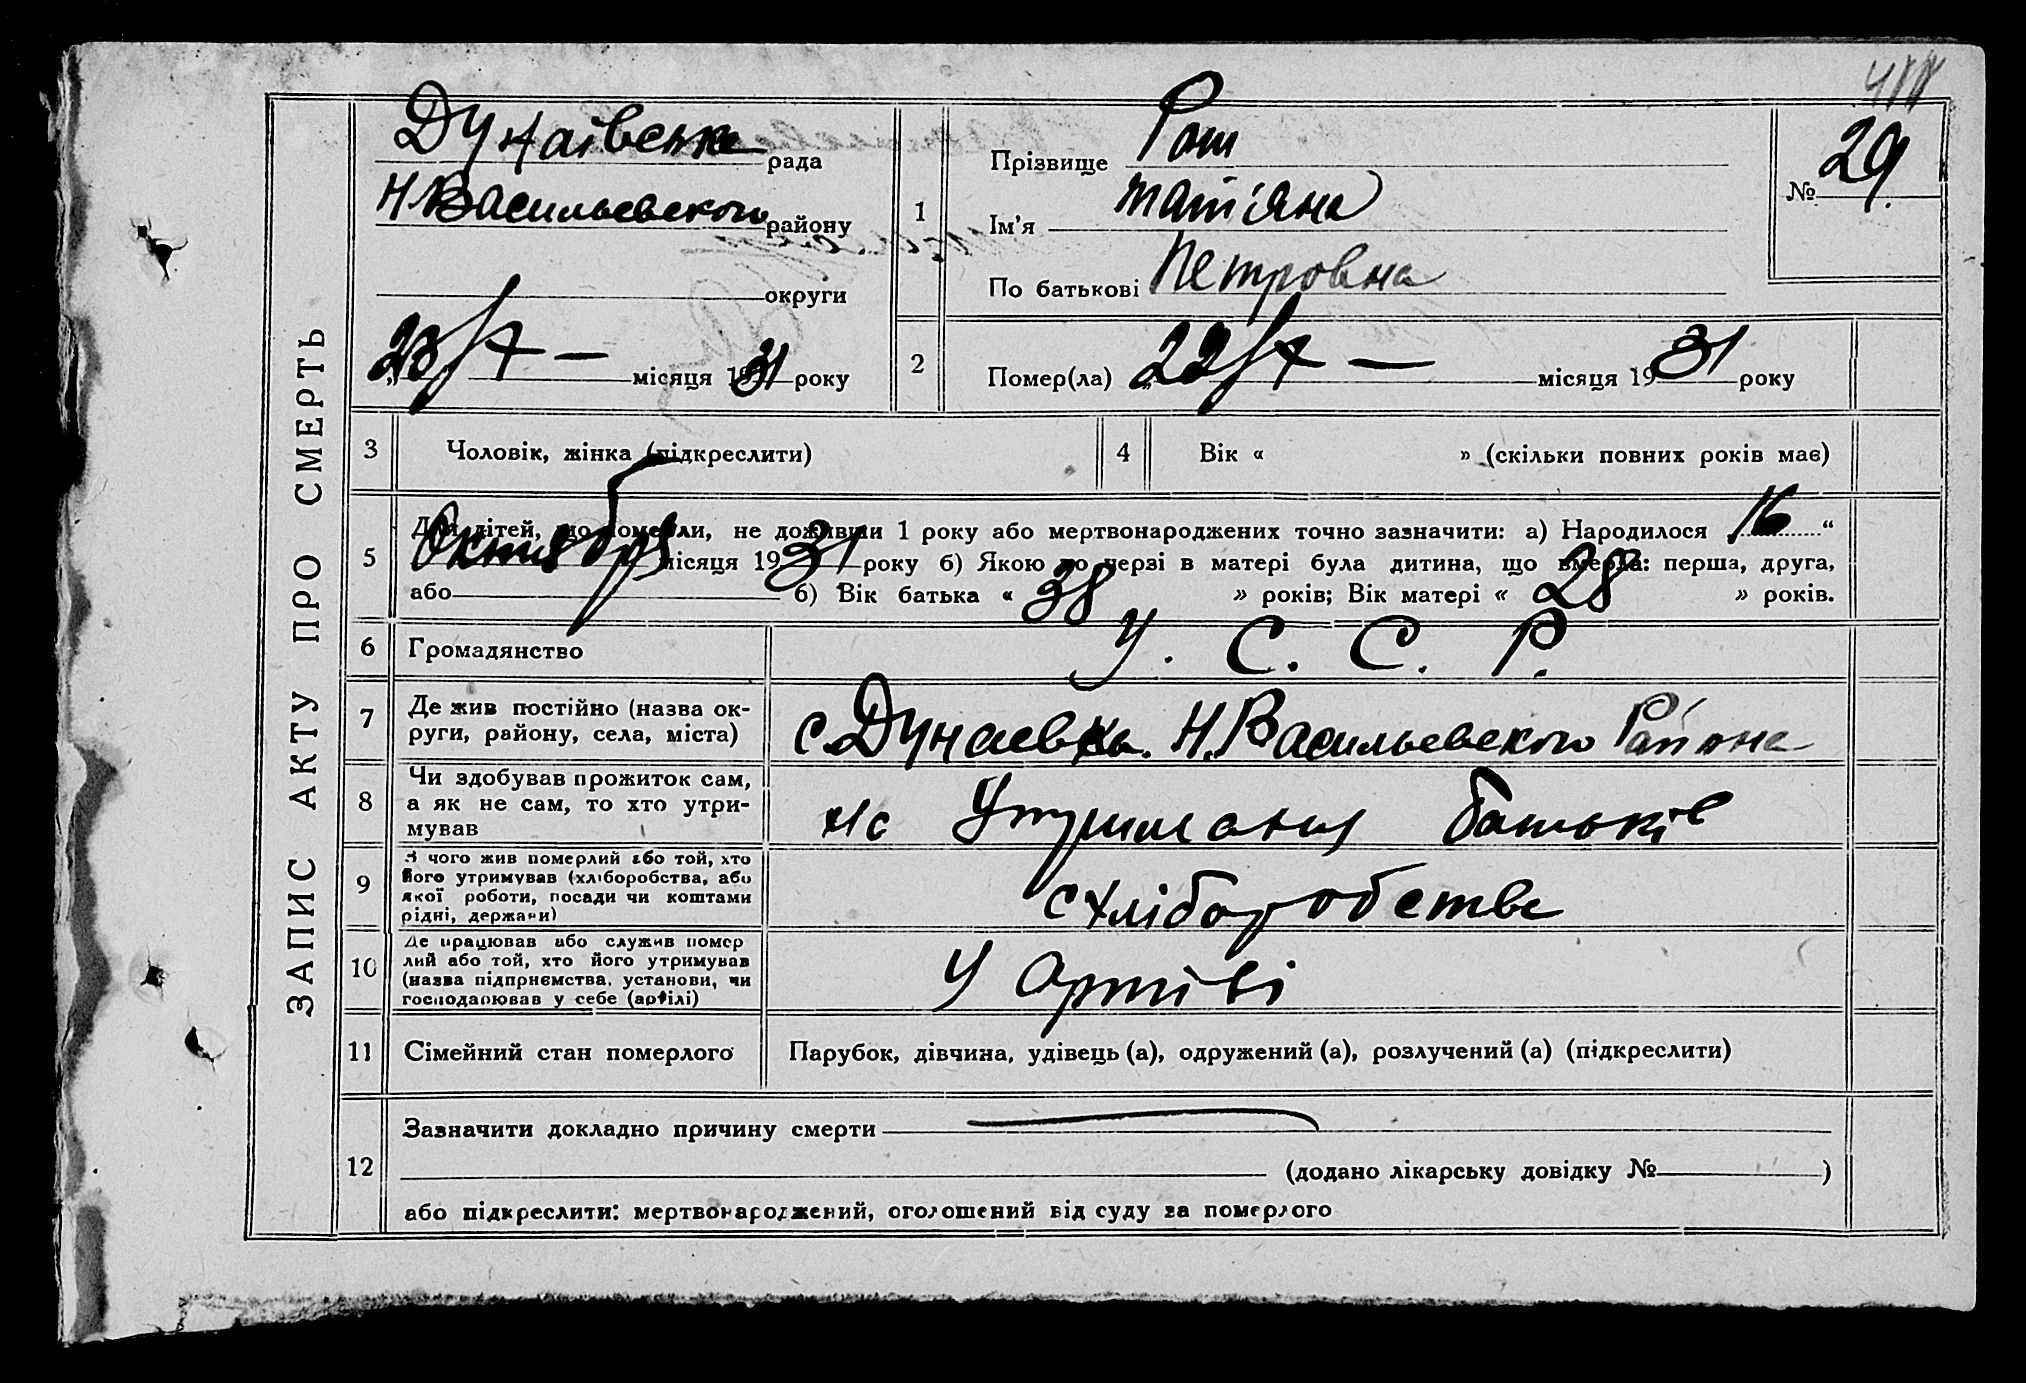 ЗАПИС АКТУ ПРО СМЕРТЬ
Дунаівська рада
Н Васильевского району
округи
23/X — місяця 1931 року
1
Прізвище Рот
Ім'я Тат'яна
По батькові Петровна
№ 29.
2
Помер(ла) „22/X — місяця 1931 року
3
Чоловік, жінка (підкреслити)
4
Вік « » (скільки повних років має)
5
Для дітей, що померли, не доживши 1 року або мертвонароджених точно зазначити: а) Народилося 16 “
Октября місяця 1931 року б) Якою по черзі в матері була дитина, що вмерла: перша, друга,
або б) Вік батька « 38 » років; Вік матері « 28 » років.
6
Громадянство
У. С. С. Р.
7
Де жив постійно (назва ок-
руги, району, села, міста)
с. Дунаевка. Н. Васильевского Района
8
Чи здобував прожиток сам,
а як не сам, то хто утри-
мував
на Утриманя батьків
9
З чого жив померлий або той, хто
його утримував (хліборобства, або
якої роботи, посади чи коштами
рідні, держави)
с хліборобства
10
Де працював або служив помер
лий або той, хто його утримував
(назва підприємства, установи, чи
господарював у себе (артілі)
У Артілі
11
Сімейний стан померлого
Парубок, дівчина, удівець (а), одружений (а), розлучений (а) (підкреслити)
12
Зазначити докладно причину смерти
(додано лікарську довідку № )
або підкреслити: мертвонароджений, оголошений від суду за померлого